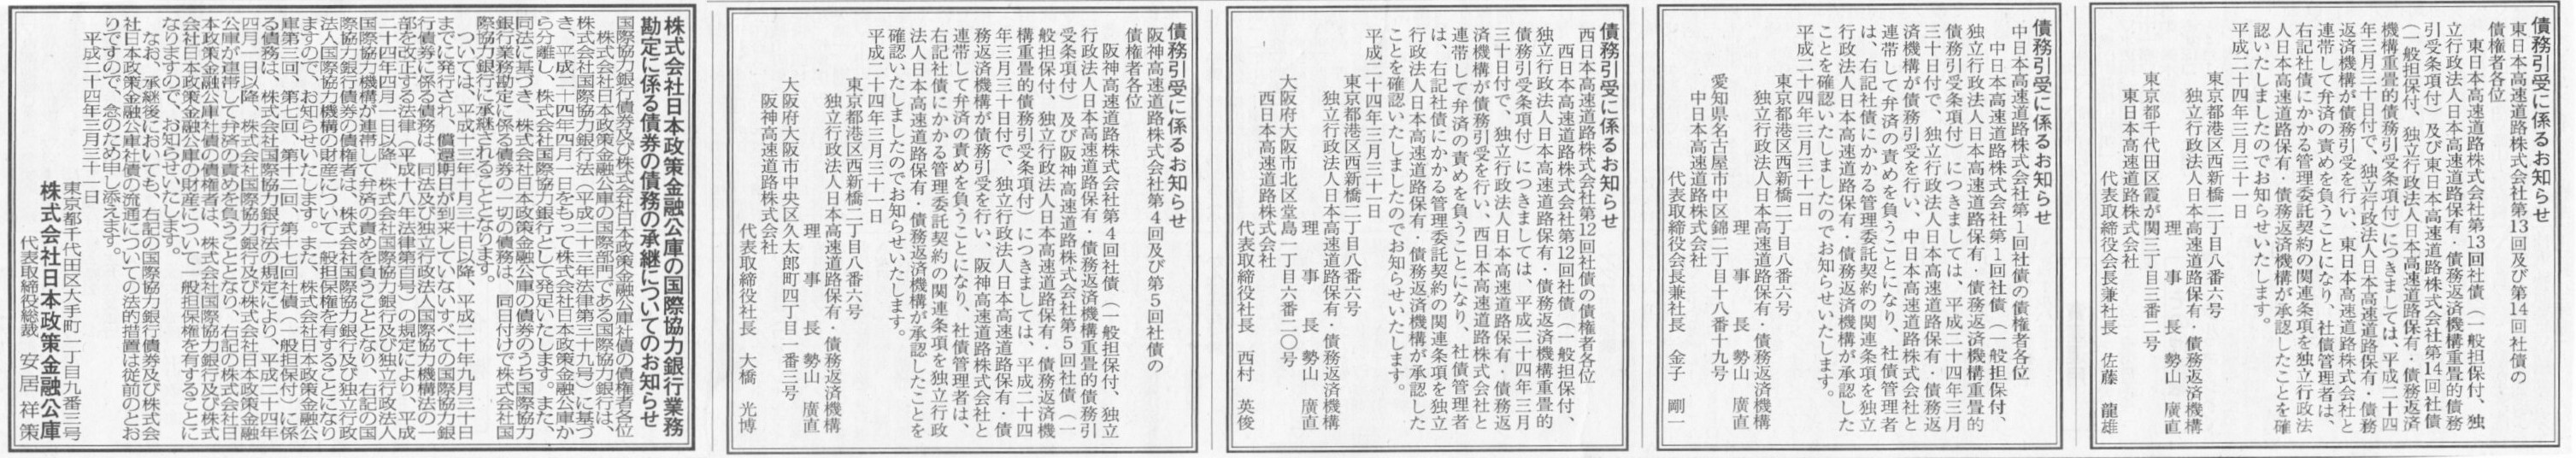 債務引受に係るお知らせ
東日本高速道路株式会社第13回及び第14回社債の
債権者各位
東日本高速道路株式会社第13回社債（一般担保付、独
立行政法人日本高速道路保有・債務返済機構重畳的債務
引受条項付）及び東日本高速道路株式会社第14回社債
（一般担保付、独立行政法人日本高速道路保有・債務返済
機構重畳的債務引受条項付）につきましては、平成二十四
年三月三十日付で、独立行政法人日本高速道路保有・債務
返済機構が債務引受を行い、東日本高速道路株式会社と
連帯して弁済の責めを負うことになり、社債管理者は、
右記社債にかかる管理委託契約の関連条項を独立行政法
人日本高速道路保有・債務返済機構が承認したことを確
認いたしましたのでお知らせいたします。
平成二十四年三月三十一日
東京都港区西新橋二丁目八番六号
独立行政法人日本高速道路保有・債務返済機構
理事長 勢山 廣直
東京都千代田区霞が関三丁目三番二号
東日本高速道路株式会社
代表取締役会長兼社長 佐藤 龍雄
債務引受に係るお知らせ
中日本高速道路株式会社第1回社債の債権者各位
中日本高速道路株式会社第1回社債（一般担保付、
独立行政法人日本高速道路保有・債務返済機構重畳的
債務引受条項付）につきましては、平成二十四年三月
三十日付で、独立行政法人日本高速道路保有・債務返
済機構が債務引受を行い、中日本高速道路株式会社と
連帯して弁済の責めを負うことになり、社債管理者
は、右記社債にかかる管理委託契約の関連条項を独立
行政法人日本高速道路保有・債務返済機構が承認した
ことを確認いたしましたのでお知らせいたします。
平成二十四年三月三十一日
東京都港区西新橋二丁目八番六号
独立行政法人日本高速道路保有・債務返済機構
理事長 勢山 廣直
愛知県名古屋市中区錦二丁目十八番十九号
中日本高速道路株式会社
代表取締役会長兼社長 金子 剛一
債務引受に係るお知らせ
西日本高速道路株式会社第12回社債の債権者各位
西日本高速道路株式会社第12回社債（一般担保付、
独立行政法人日本高速道路保有・債務返済機構重畳的
債務引受条項付）につきましては、平成二十四年三月
三十日付で、独立行政法人日本高速道路保有・債務返
済機構が債務引受を行い、西日本高速道路株式会社と
連帯して弁済の責めを負うことになり、社債管理者
は、右記社債にかかる管理委託契約の関連条項を独立
行政法人日本高速道路保有・債務返済機構が承認した
ことを確認いたしましたのでお知らせいたします。
平成二十四年三月三十一日
東京都港区西新橋二丁目八番六号
独立行政法人日本高速道路保有・債務返済機構
理事長 勢山 廣直
大阪府大阪市北区堂島一丁目六番二〇号
西日本高速道路株式会社
代表取締役社長 西村 英俊
債務引受に係るお知らせ
阪神高速道路株式会社第4回及び第5回社債の
債権者各位
阪神高速道路株式会社第4回社債（一般担保付、独立
行政法人日本高速道路保有・債務返済機構重畳的債務引
受条項付）及び阪神高速道路株式会社第5回社債（一
般担保付、独立行政法人日本高速道路保有・債務返済機
構重畳的債務引受条項付）につきましては、平成二十四
年三月三十日付で、独立行政法人日本高速道路保有・債
務返済機構が債務引受を行い、阪神高速道路株式会社と
連帯して弁済の責めを負うことになり、社債管理者は、
右記社債にかかる管理委託契約の関連条項を独立行政
法人日本高速道路保有・債務返済機構が承認したことを
確認いたしましたのでお知らせいたします。
平成二十四年三月三十一日
東京都港区西新橋二丁目八番六号
独立行政法人日本高速道路保有・債務返済機構
理事長 勢山 廣直
大阪府大阪市中央区久太郎町四丁目一番三号
阪神高速道路株式会社
代表取締役社長 大橋 光博
株式会社日本政策金融公庫の国際協力銀行業務
勘定に係る債券の債務の承継についてのお知らせ
国際協力銀行債券及び株式会社日本政策金融公庫社債の債権者各位
株式会社日本政策金融公庫の国際部門である国際協力銀行は、
株式会社国際協力銀行法（平成二十三年法律第三十九号）に基づ
き、平成二十四年四月一日をもって株式会社日本政策金融公庫か
ら分離し、株式会社国際協力銀行として発足いたします。また、
同法に基づき、株式会社日本政策金融公庫の債券のうち国際協力
銀行業務勘定に係る債券の一切の債務は、同日付けで株式会社国
際協力銀行に承継されることとなります。
ついては、平成十三年十月三十日以降、平成二十年九月三十日
までに発行され、償還期日が到来していないすべての国際協力銀
行債券に係る債務は、同法及び独立行政法人国際協力機構法の一
部を改正する法律（平成十八年法律第百号）の規定により、平成
二十四年四月一日以降、株式会社国際協力銀行及び独立行政法人
国際協力機構が連帯して弁済の責めを負うこととなり、右記の国
際協力銀行債券の債権者は、株式会社国際協力銀行及び独立行政
法人国際協力機構の財産について一般担保権を有することになり
ますので、お知らせいたします。また、株式会社日本政策金融公
庫第三回、第七回、第十二回、第十七回社債（一般担保付）に係
る債務は、株式会社国際協力銀行法の規定により、平成二十四年
四月一日以降、株式会社国際協力銀行及び株式会社日本政策金融
公庫が連帯して弁済の責めを負うこととなり、右記の株式会社日
本政策金融公庫社債の債権者は、株式会社国際協力銀行及び株式
会社日本政策金融公庫の財産について一般担保権を有することに
なりますので、お知らせいたします。
なお、承継後においても、右記の国際協力銀行債券及び株式会
社日本政策金融公庫社債の流通についての法的措置は従前のとお
りですので、念のため申し添えます。
平成二十四年三月三十一日
東京都千代田区大手町一丁目九番三号
株式会社日本政策金融公庫
代表取締役総裁 安居 祥策